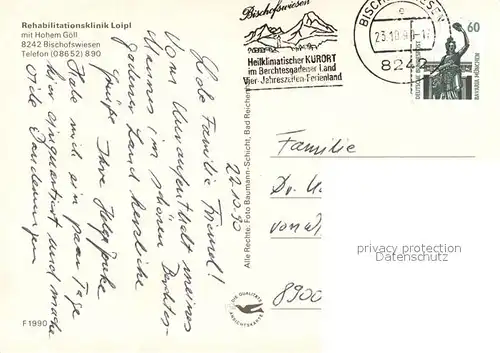 Rehabilitationsklinik Loipl
mit Hohem Göll
8242 Bischofswiesen
Telefon (08652) 890
Bischofswiesen
Heilklimatischer KURORT
im Berchtesgadener Land
Vier-Jahreszeiten-Ferienland
BISCHOFSWIESEN
23.10.90-17
8242
60
DEUTSCHE BUNDESPOST
BAVARIA MÜNCHEN
22.10.90
Liebe Familie
Vom Kuraufenthalt meines
Mannes im schönen Berchtes-
gadener Land herzliche
Grüße Ihre Helga
Habe mich ein paar Tage
hier einquartiert und mache
viele Wanderungen
Alle Rechte: Foto Baumann-Schicht, Bad Reichenhall
Familie
Dr.
8900
privacy protection
Datenschutz
DIE QUALITÄTS
ANSICHTSKARTE
F 1990